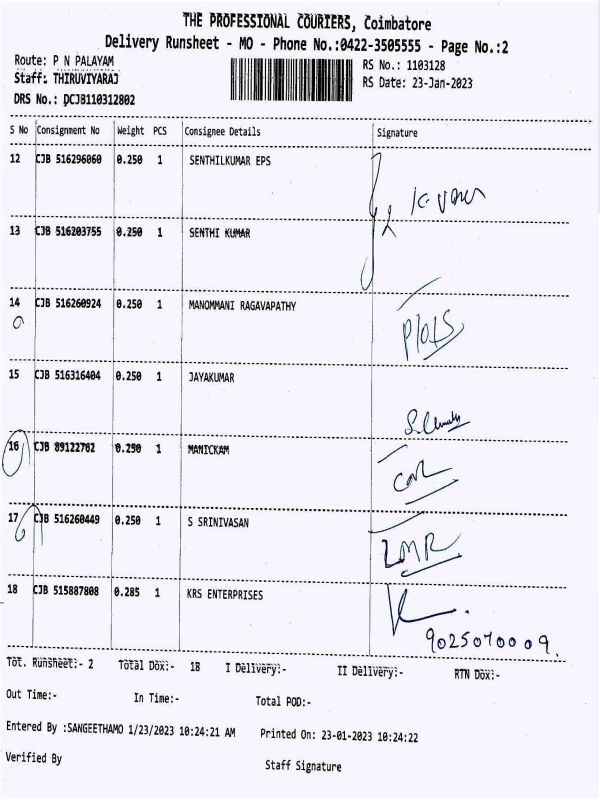 THE PROFESSIONAL COURIERS, Coimbatore
Delivery Runsheet - MO - Phone No.:0422-3505555 - Page No.:2
Route: P N PALAYAM
RS No.: 1103128
Staff: THIRUVIYARAJ
RS Date: 23-Jan-2023
DRS No.: DCJB110312802
S No Consignment No Weight PCS Consignee Details Signature
12 CJB 516296060 0.250 1 SENTHILKUMAR EPS
13 CJB 516203755 0.250 1 SENTHI KUMAR
14 CJB 516260924 0.250 1 MANOMMANI RAGAVAPATHY
15 CJB 516316404 0.250 1 JAYAKUMAR
16 CJB 89122762 0.250 1 MANICKAM
17 CJB 516260449 0.250 1 S SRINIVASAN
18 CJB 515887808 0.285 1 KRS ENTERPRISES
9025070009.
Tot. Runsheet:- 2 Total Dox:- 18 I Delivery:- II Delivery:- RTN Dox:-
Out Time:- In Time:- Total POD:-
Entered By :SANGEETHAMO 1/23/2023 10:24:21 AM Printed On: 23-01-2023 10:24:22
Verified By Staff Signature